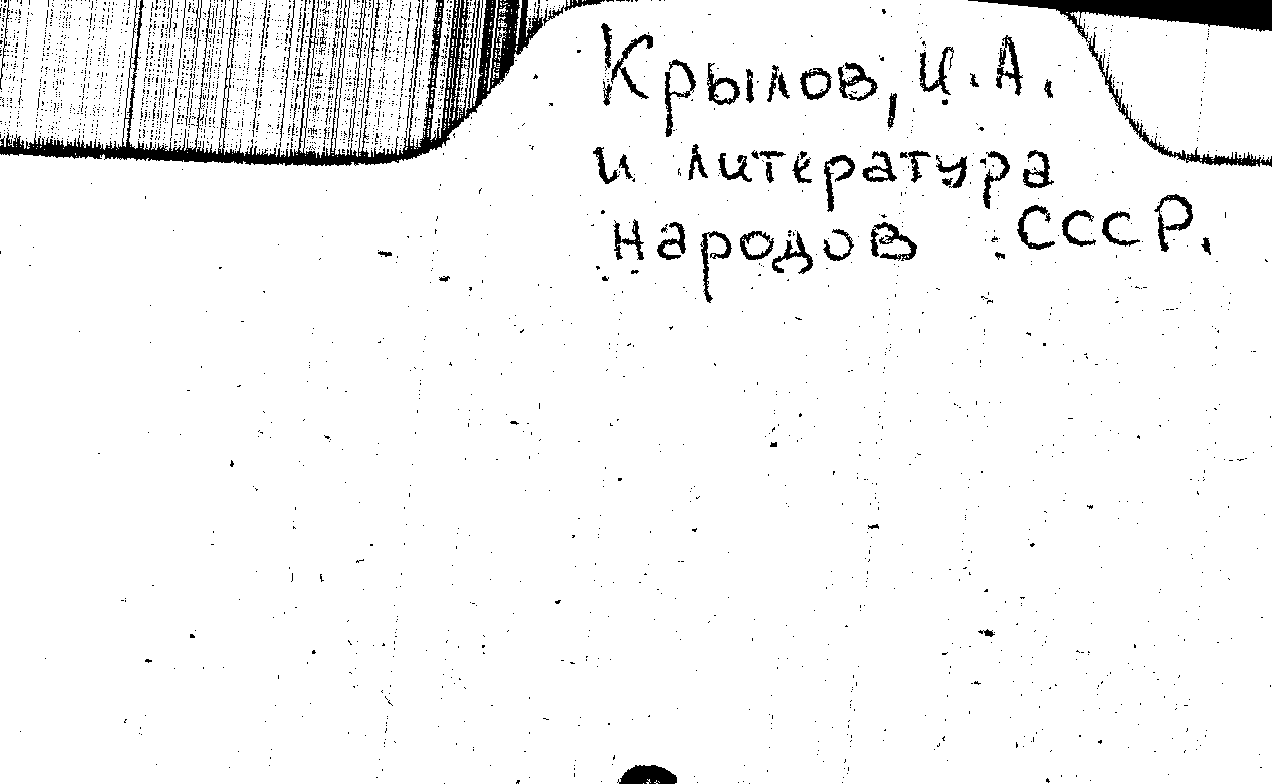 Крылов, И.А.
и литература
народов СССР.